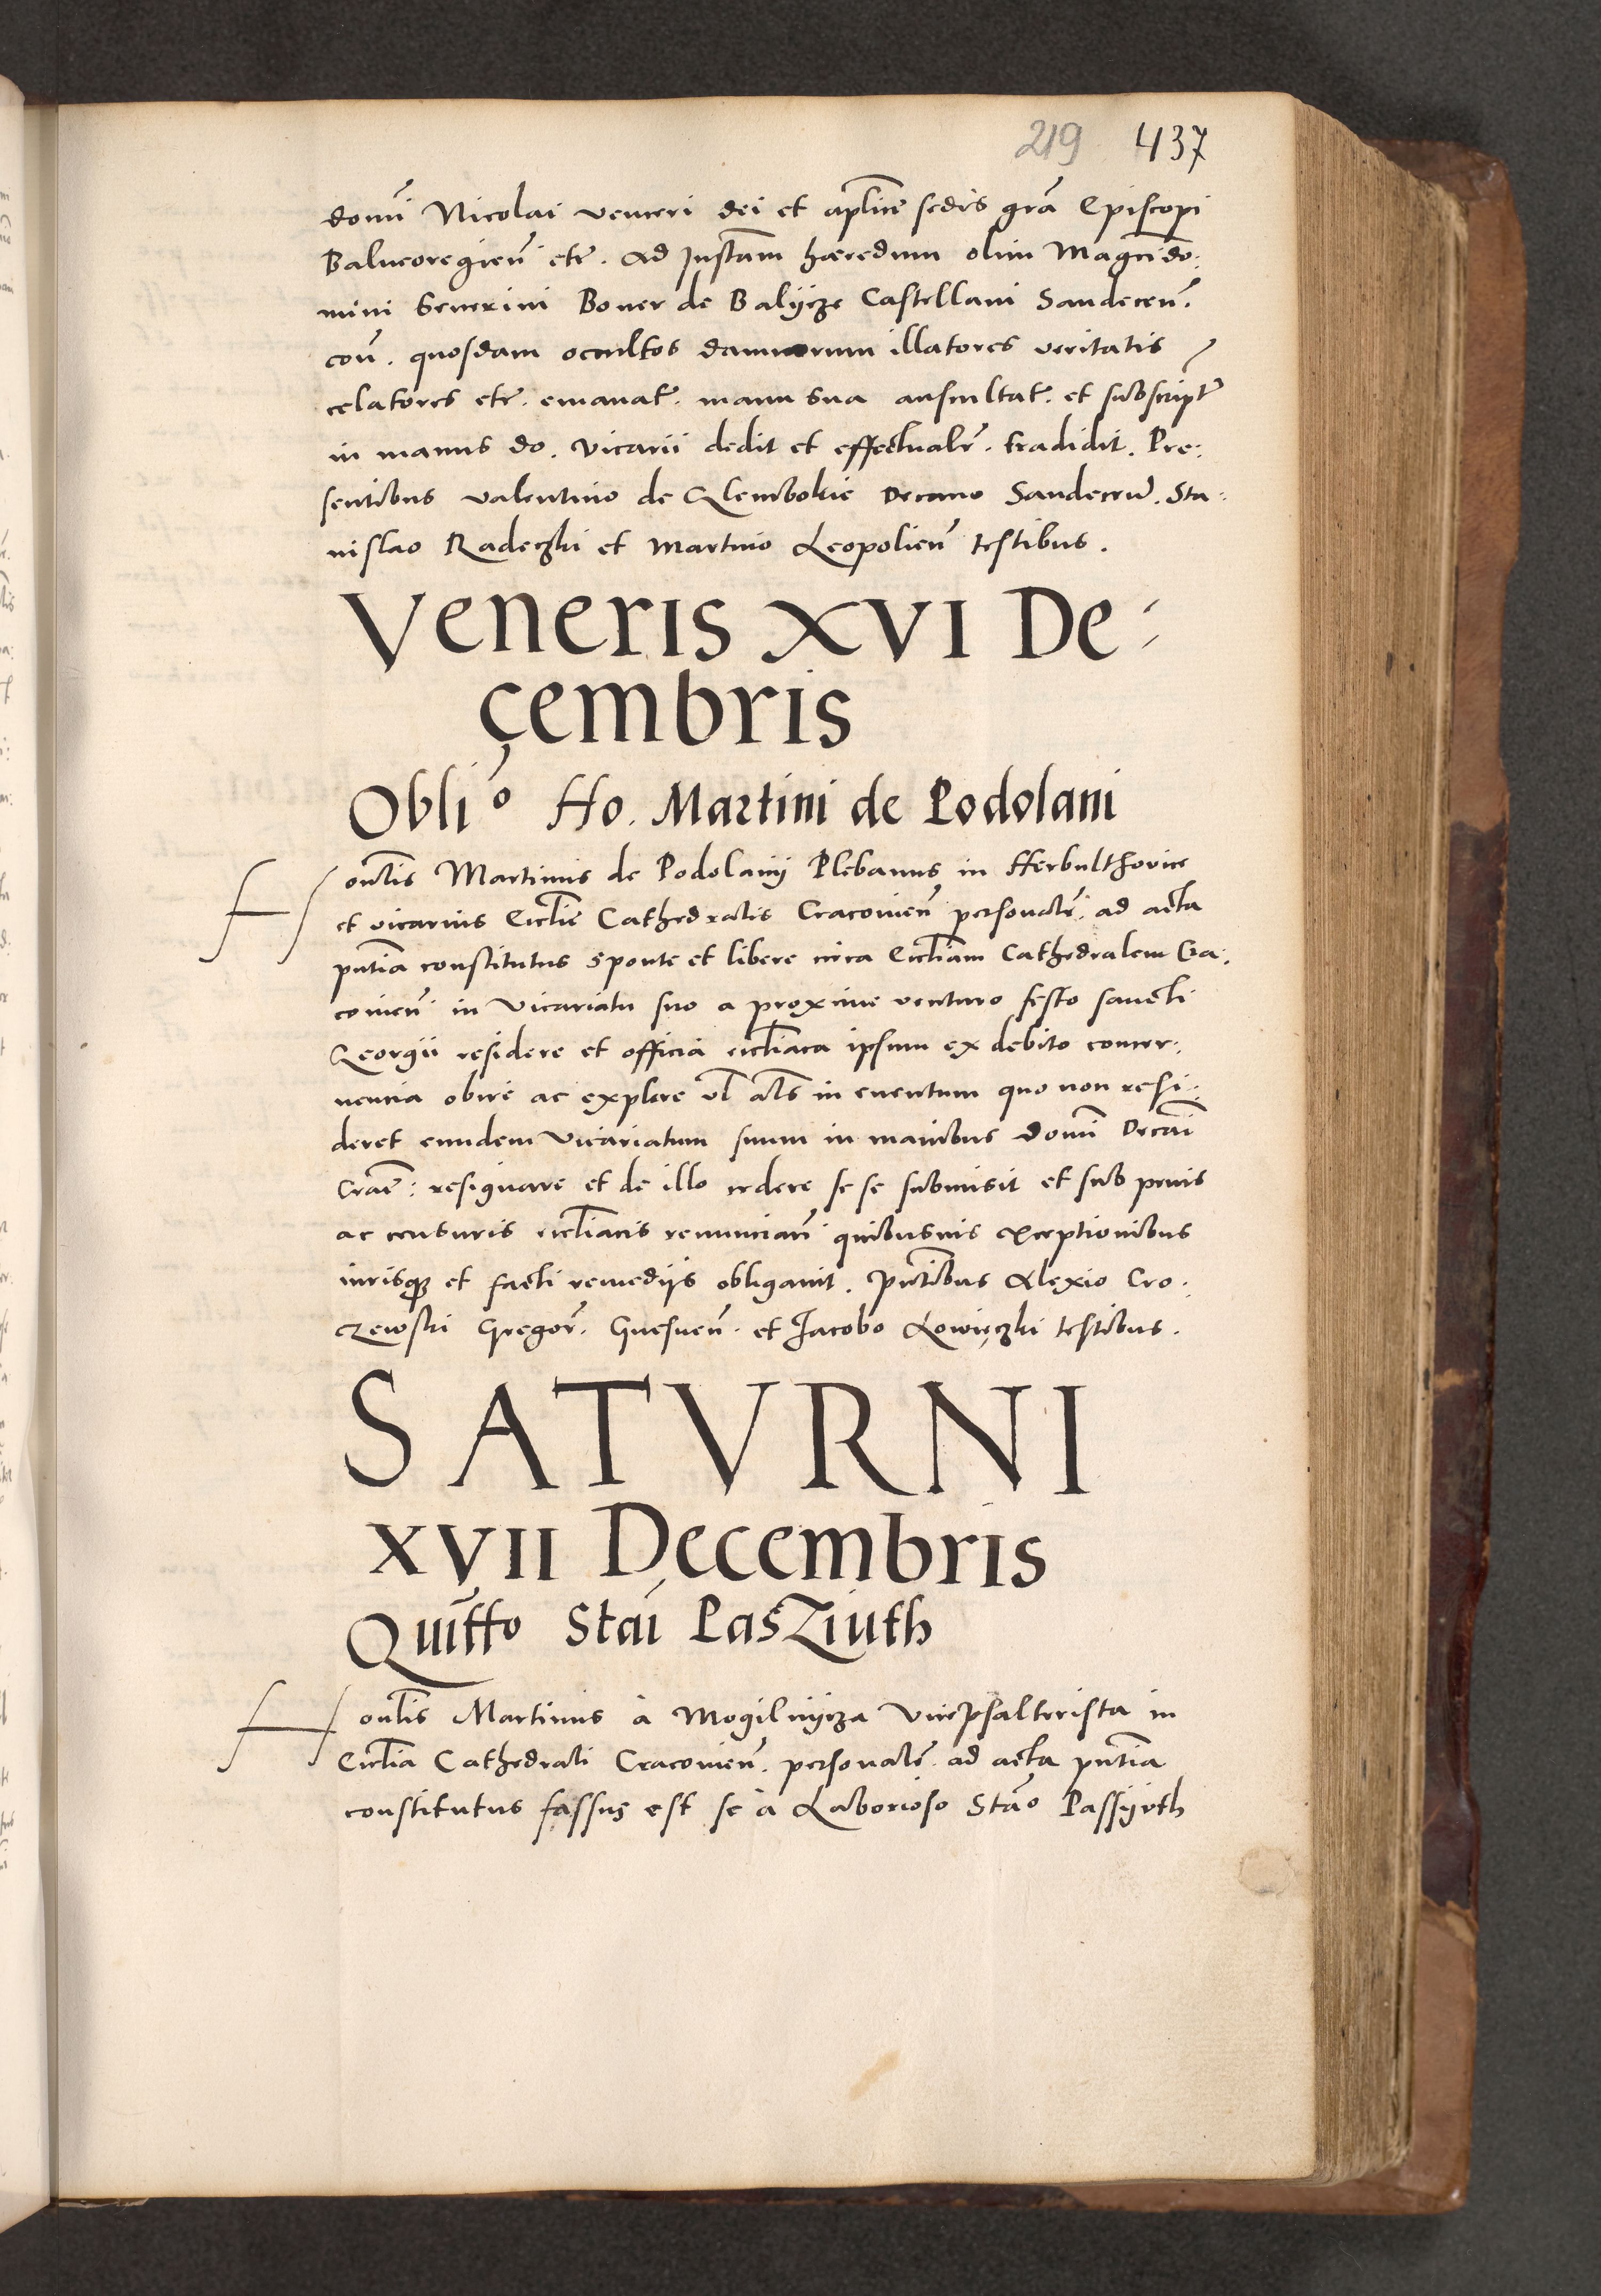 219 437
domı̃ Nicolai veneri dei et aplice sedis grã Episcopi
Balneoregieñ etc. Ad Instam hæredum olim Magci do:
mini Seuerini Boner de Balijcze Castellani Sandeceñ.
coñ. quosdam occultos damnorum illatores veritatis
celatores etc. emanat. manu sua auscultat. et subscript
in manus do. vicarii dedit et effectualr̃. tradidit. Pre:
sentibus valentino de Glembokie Decano Sandeceñ. Sta:
nislao Radeczki et Martino Leopolieñ testibus.
Veneris XVI De:
cembris
Oblio Ho. Martini de Podolani
Honlis Martinus de Podolanij Plebanus in Herbulthovice
et vicarius Ecclie Cathedralis Cracouieñ personalr̃. ad acta
pntia constitutus sponte et libere circa Eccliam Cathedralem Cra:
couieñ in vicariatu suo a proxime venturo festo sancti
Georgii residere et officia eccliaca ipsum ex debito concer:
nencia obire ac explere vl als in euentum quo non resi:
deret eundem vicariatum suum in manibus domı̃ Decaı̃
Crac̃: resignare et de illo cedere se se submisit et sub penis
ac censuris eccliacis renunciañ quibusuis exceptionibus
iurisque et facti remedijs obligauit. pntibus Alexio Cro:
czewski Gregor̃. Gnesneñ. et Jacobo Lowieczki testibus.
SATVRNI
XVII Decembris
Quitto Stai Pasziuth
Honlis Martinus à Mogilnijcza vicepsalterista in
Ecclia Cathedrali Cracouieñ. personalr̃. ad acta pntia
constitutus fassus est se à Laborioso Stão Passijuth